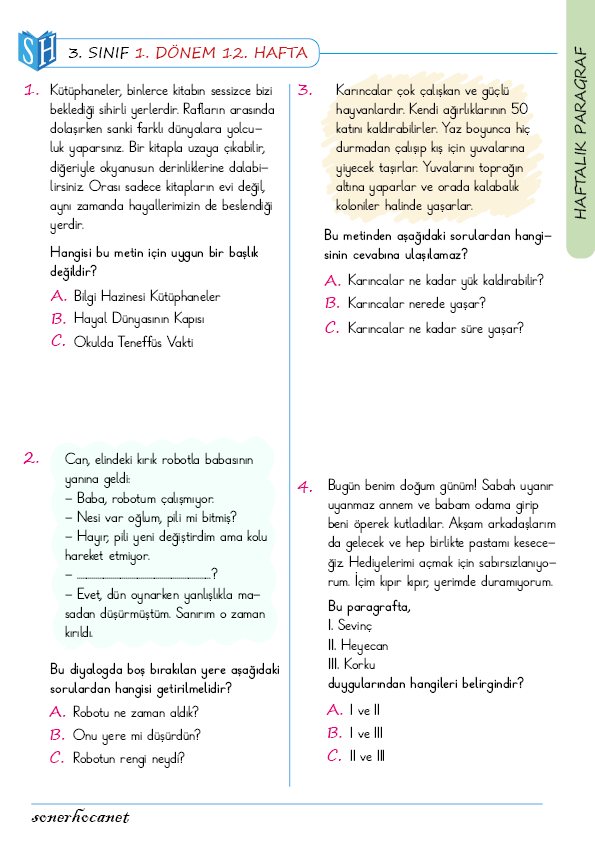 SH
3. SINIF 1. DÖNEM 12. HAFTA
HAFTALIK PARAGRAF
1. Kütüphaneler, binlerce kitabın sessizce bizi
beklediği sihirli yerlerdir. Rafların arasında
dolaşırken sanki farklı dünyalara yolcu-
luk yaparsınız. Bir kitapla uzaya çıkabilir,
diğeriyle okyanusun derinliklerine dalabi-
lirsiniz. Orası sadece kitapların evi değil,
aynı zamanda hayallerimizin de beslendiği
yerdir.
Hangisi bu metin için uygun bir başlık
değildir?
A. Bilgi Hazinesi Kütüphaneler
B. Hayal Dünyasının Kapısı
C. Okulda Teneffüs Vakti
2. Can, elindeki kırık robotla babasının
yanına geldi:
– Baba, robotum çalışmıyor.
– Nesi var oğlum, pili mi bitmiş?
– Hayır, pili yeni değiştirdim ama kolu
hareket etmiyor.
– ..........................................................?
– Evet, dün oynarken yanlışlıkla ma-
sadan düşürmüştüm. Sanırım o zaman
kırıldı.
Bu diyalogda boş bırakılan yere aşağıdaki
sorulardan hangisi getirilmelidir?
A. Robotu ne zaman aldık?
B. Onu yere mi düşürdün?
C. Robotun rengi neydi?
3. Karıncalar çok çalışkan ve güçlü
hayvanlardır. Kendi ağırlıklarının 50
katını kaldırabilirler. Yaz boyunca hiç
durmadan çalışıp kış için yuvalarına
yiyecek taşırlar. Yuvalarını toprağın
altına yaparlar ve orada kalabalık
koloniler halinde yaşarlar.
Bu metinden aşağıdaki sorulardan hangi-
sinin cevabına ulaşılamaz?
A. Karıncalar ne kadar yük kaldırabilir?
B. Karıncalar nerede yaşar?
C. Karıncalar ne kadar süre yaşar?
4. Bugün benim doğum günüm! Sabah uyanır
uyanmaz annem ve babam odama girip
beni öperek kutladılar. Akşam arkadaşlarım
da gelecek ve hep birlikte pastamı kesece-
ğiz. Hediyelerimi açmak için sabırsızlanıyo-
rum. İçim kıpır kıpır, yerimde duramıyorum.
Bu paragrafta,
I. Sevinç
II. Heyecan
III. Korku
duygularından hangileri belirgindir?
A. I ve II
B. I ve III
C. II ve III
sonerhocanet